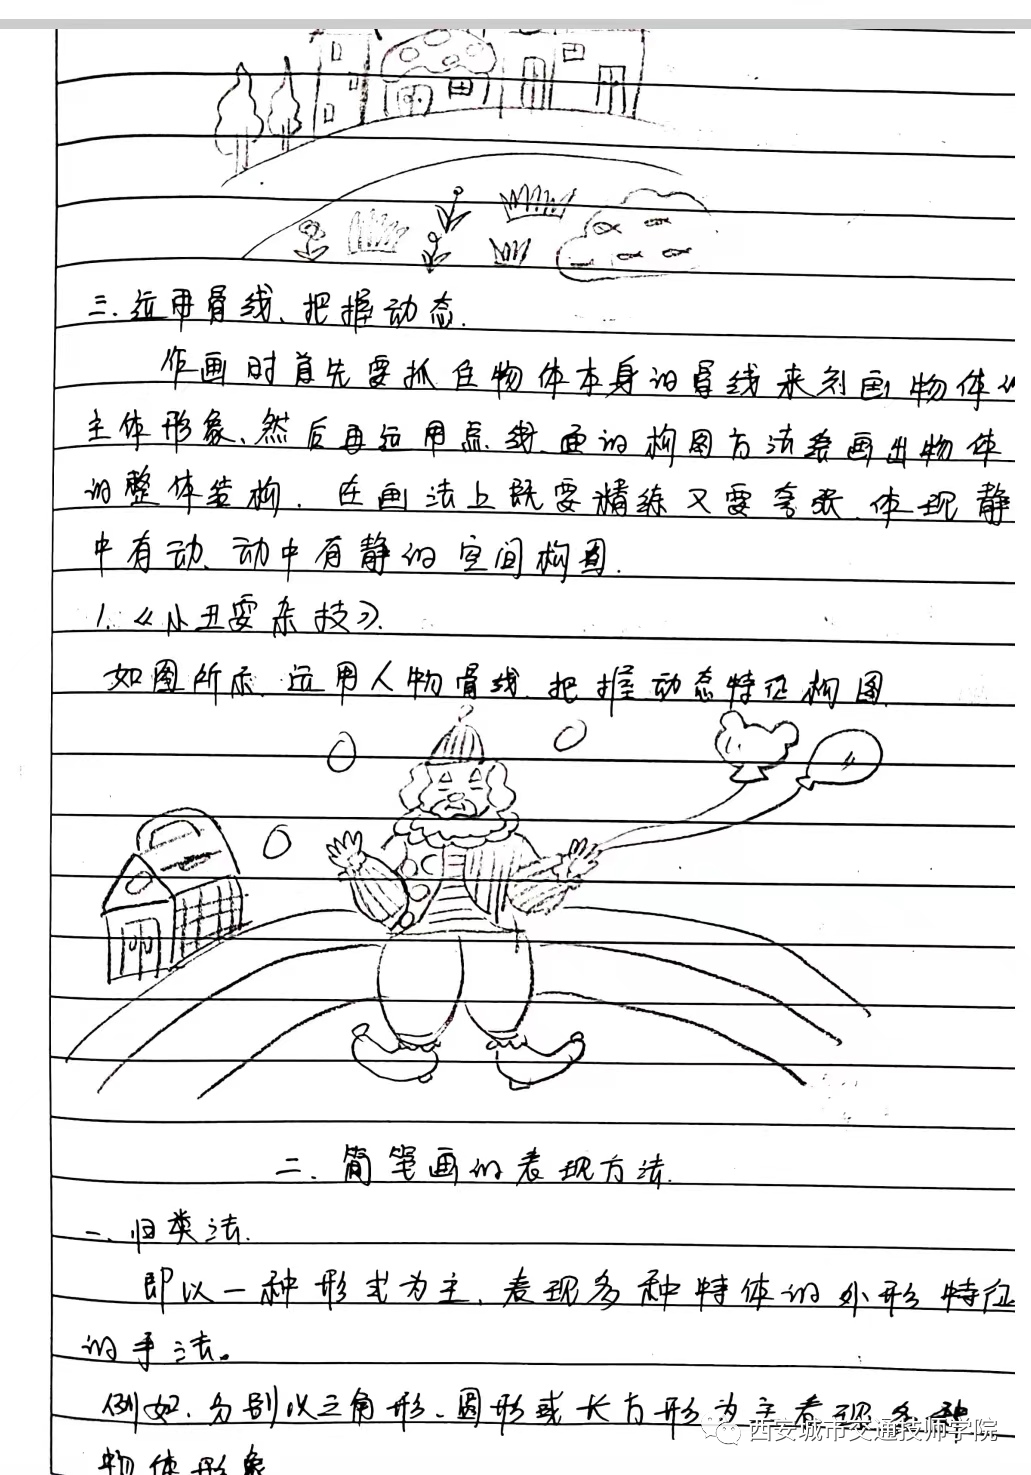 三.运用骨线、把握动态.
作画时首先要抓住物体本身的骨线来刻画物体的
主体形象、然后再运用点、线、面的构图方法绘画出物体
的整体结构. 在画法上既要精练又要夸张、体现静
中有动、动中有静的空间构图.
1.《小丑耍杂技》.
如图所示、运用人物骨线、把握动态特征构图.
二、简笔画的表现方法.
一、归类法.
即以一种形式为主、表现多种特体的外形特征
的手法。
例如、分别以三角形、圆形或长方形为主表现多种
物体形象
西安城市交通技师学院